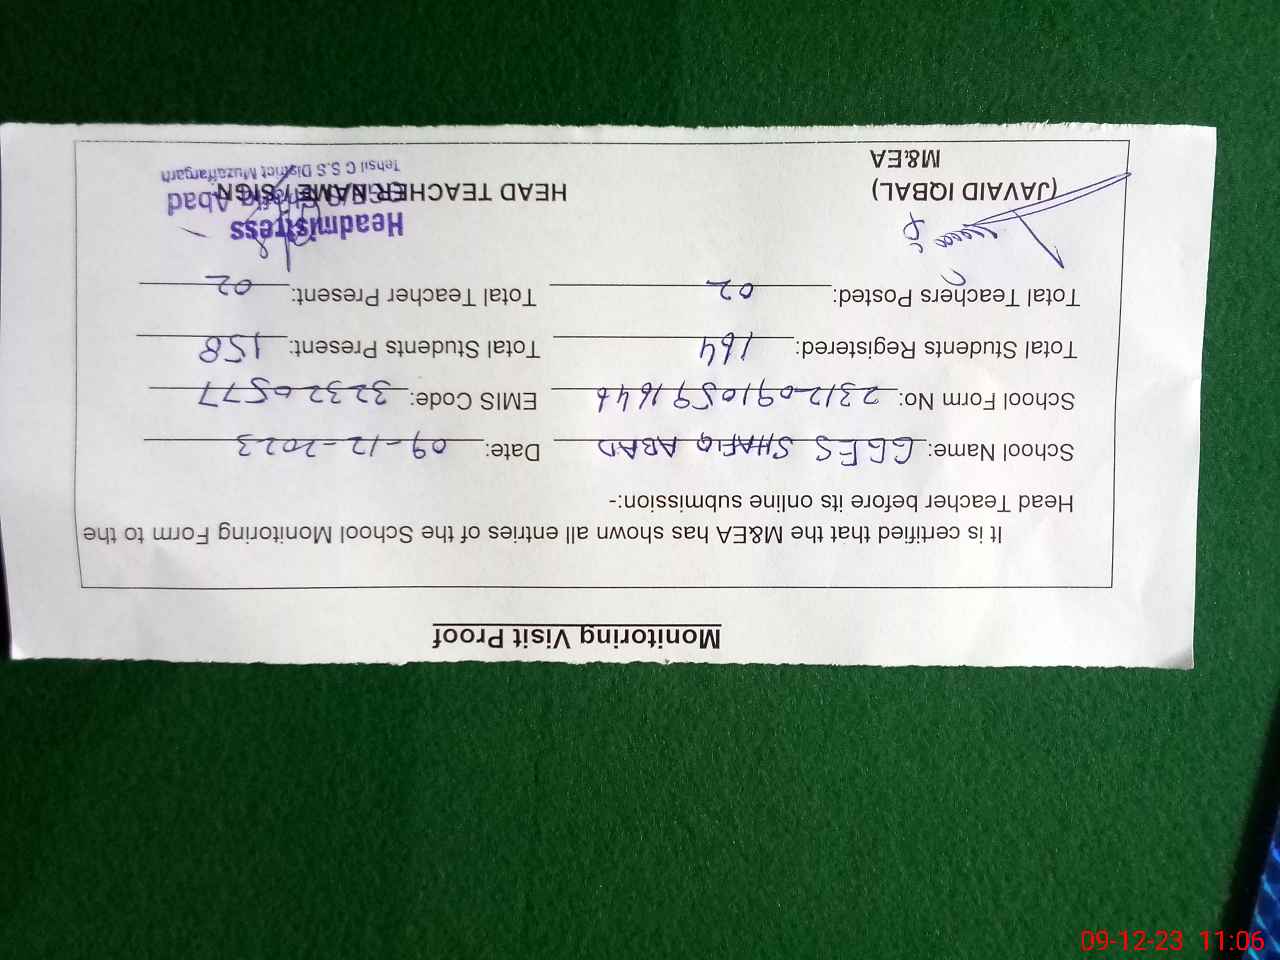 Monitoring Visit Proof
It is certified that the M&EA has shown all entries of the School Monitoring Form to the
Head Teacher before its online submission:-
School Name: GGES SHAFIQ ABAD Date: 09-12-2023
School Form No: EMIS Code: 32320577
Total Students Registered: 164 Total Students Present: 158
Total Teachers Posted: 02 Total Teacher Present: 02
Headmistress
(JAVAID IQBAL) HEAD TEACHER NAME / SIGN
Shafiq Abad
M&EA
Tehsil C S.S District Muzaffargarh
09-12-23 11:06